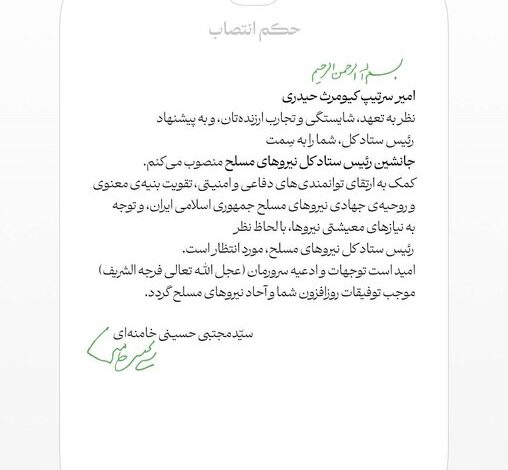 حکم انتصاب
بسم الله الرحمن الرحیم
امیر سرتیپ کیومرث حیدری
نظر به تعهد، شایستگی و تجارب ارزنده‌تان، و به پیشنهاد
رئیس ستاد کل، شما را به سِمت
جانشین رئیس ستاد کل نیروهای مسلح منصوب می‌کنم.
کمک به ارتقای توانمندی‌های دفاعی و امنیتی، تقویت بنیه‌ی معنوی
و روحیه‌ی جهادی نیروهای مسلح جمهوری اسلامی ایران، و توجه
به نیازهای معیشتی نیروها، با لحاظ نظر
رئیس ستاد کل نیروهای مسلح، مورد انتظار است.
امید است توجهات و ادعیه سرورمان (عجل الله تعالی فرجه الشریف)
موجب توفیقات روزافزون شما و آحاد نیروهای مسلح گردد.
سیّدمجتبی حسینی خامنه‌ای